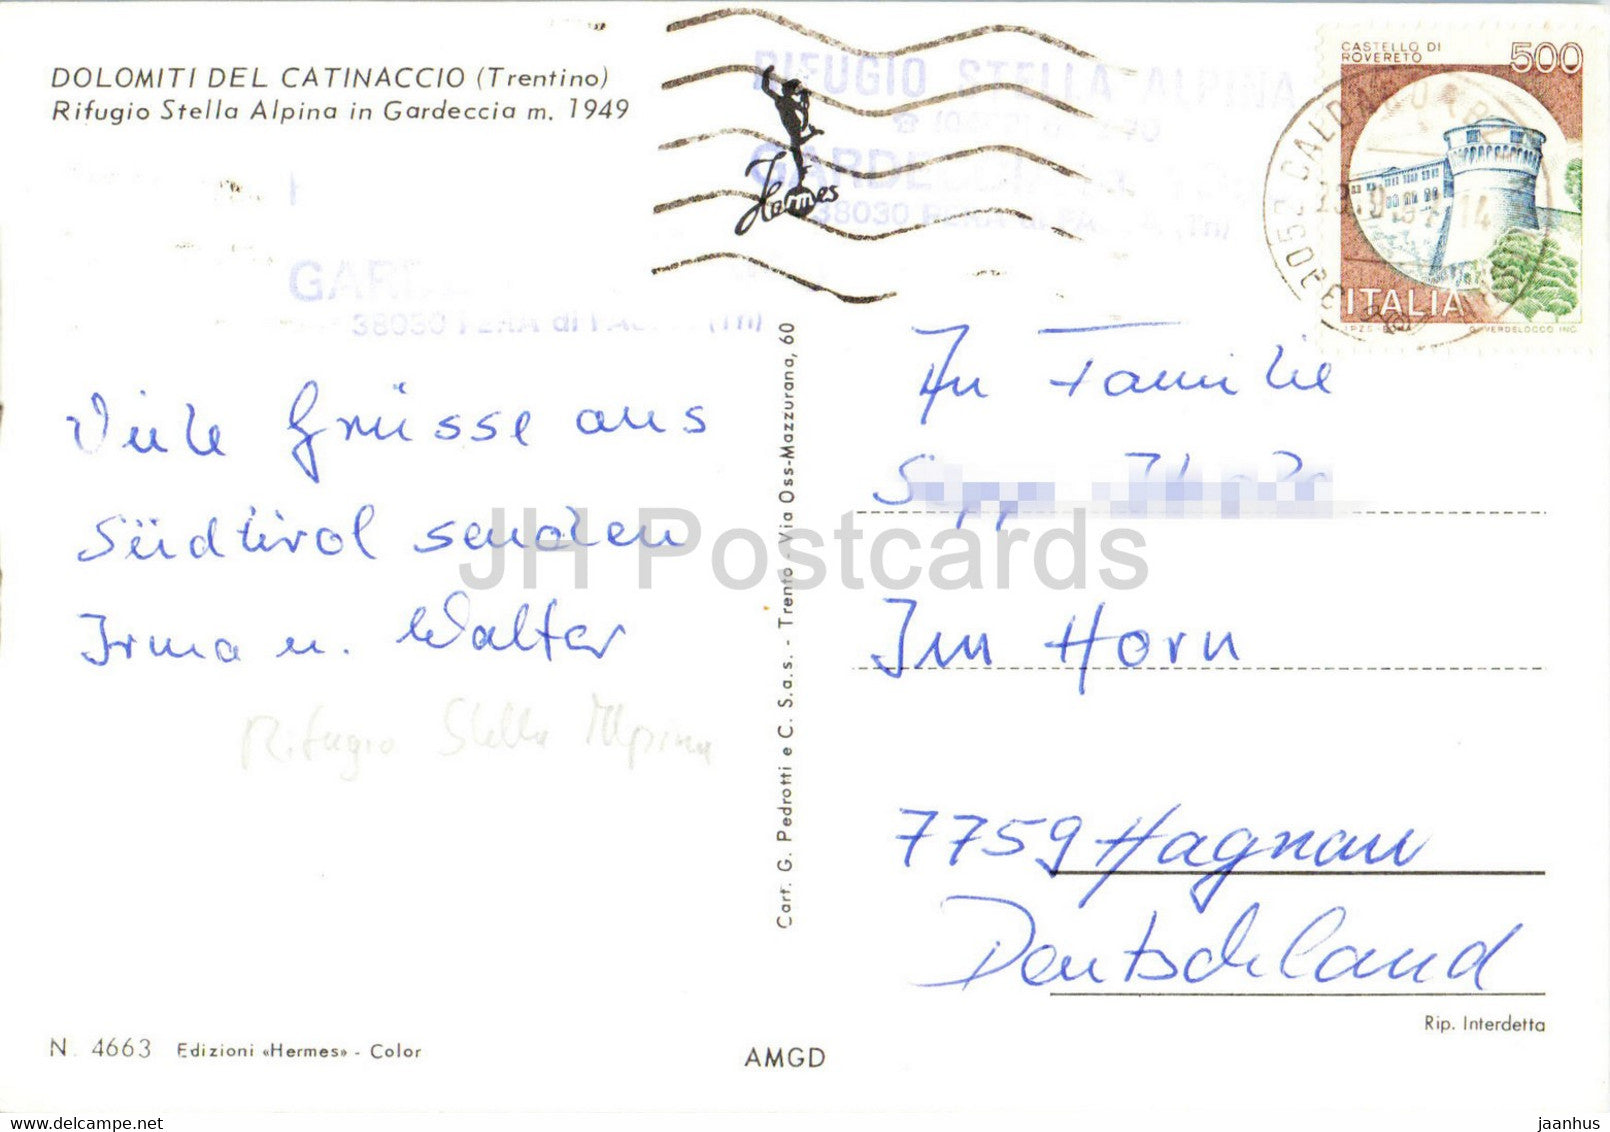 DOLOMITI DEL CATINACCIO (Trentino)
Rifugio Stella Alpina in Gardeccia m. 1949
Hermes
RIFUGIO STELLA ALPINA
38030 PERA di
GAR
38030 PERA di (Tn)
CASTELLO DI
ROVERETO
500
ITALIA
I.P.Z.S.
VERDELOCCO INC.
Viele Grüsse aus
Südtirol senden
Irma u. Walter
Rifugio Stella Alpina
Cart. G. Pedrotti e C. S.a.s. - Trento - Via Oss-Mazzurana, 60
An Familie
Im Horn
7759 Hagnau
Deutschland
JH Postcards
Rip. Interdetta
N. 4663 Edizioni «Hermes» - Color
AMGD
jaanhus